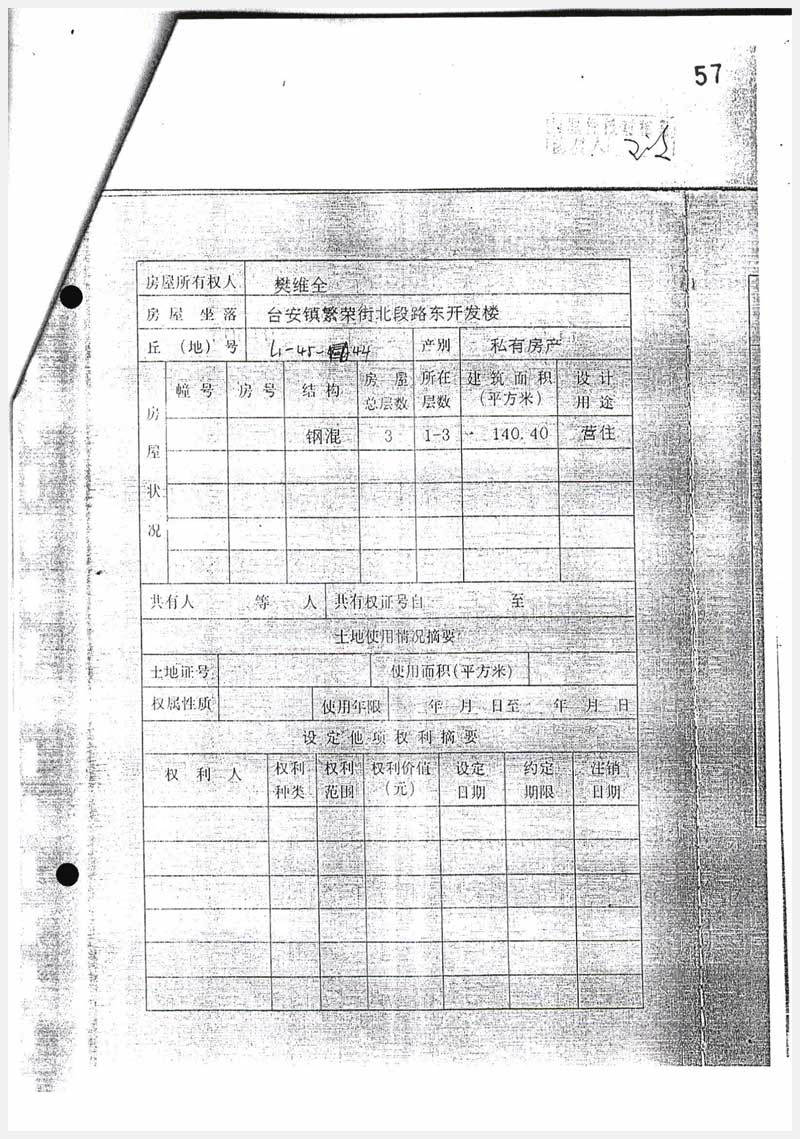 57
房屋所有权人 樊维全
房屋坐落 台安镇繁荣街北段路东开发楼
丘（地）号 产别 私有房产
房屋状况 幢号 房号 结构 房屋总层数 所在层数 建筑面积（平方米） 设计用途
钢混 3 1-3 140.40 营住
共有人 等 人 共有权证号自 至
土地使用情况摘要
土地证号 使用面积(平方米)
权属性质 使用年限 年 月 日至 年 月 日
设定他项权利摘要
权利人 权利种类 权利范围 权利价值（元） 设定日期 约定期限 注销日期